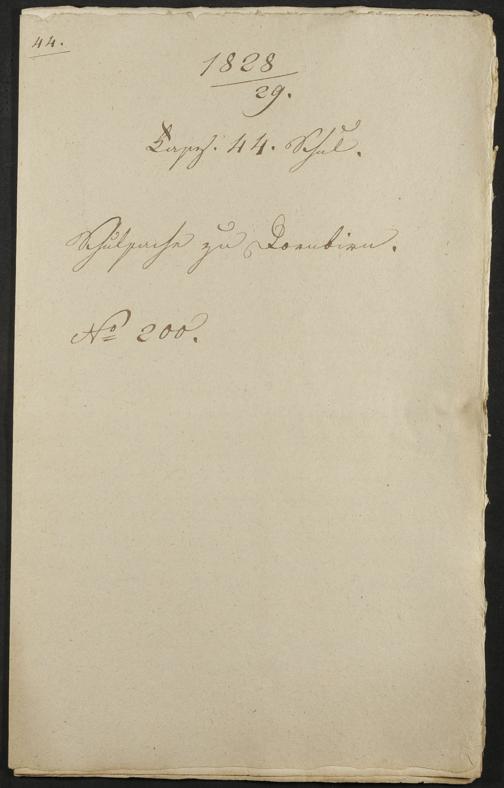 44.
1828
29.
Caps. 44. Schul.
Schulsache zu Dornbirn.
No 200.